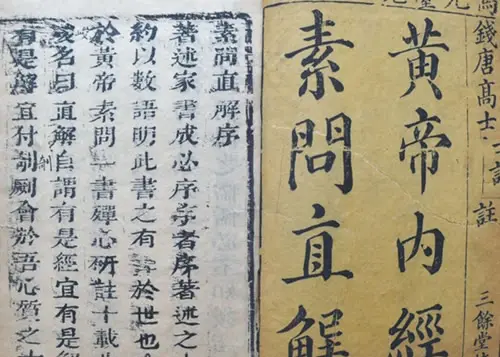 錢唐高士
註
三餘堂
黃帝內經
素問直解
素問直解序
著述家書成必序者序著述之
約以數語明此書之有於世也
於黃帝素問一書殫心研註十載
名曰直解自謂有是經宜有是
有是解宜付剞劂會於心之